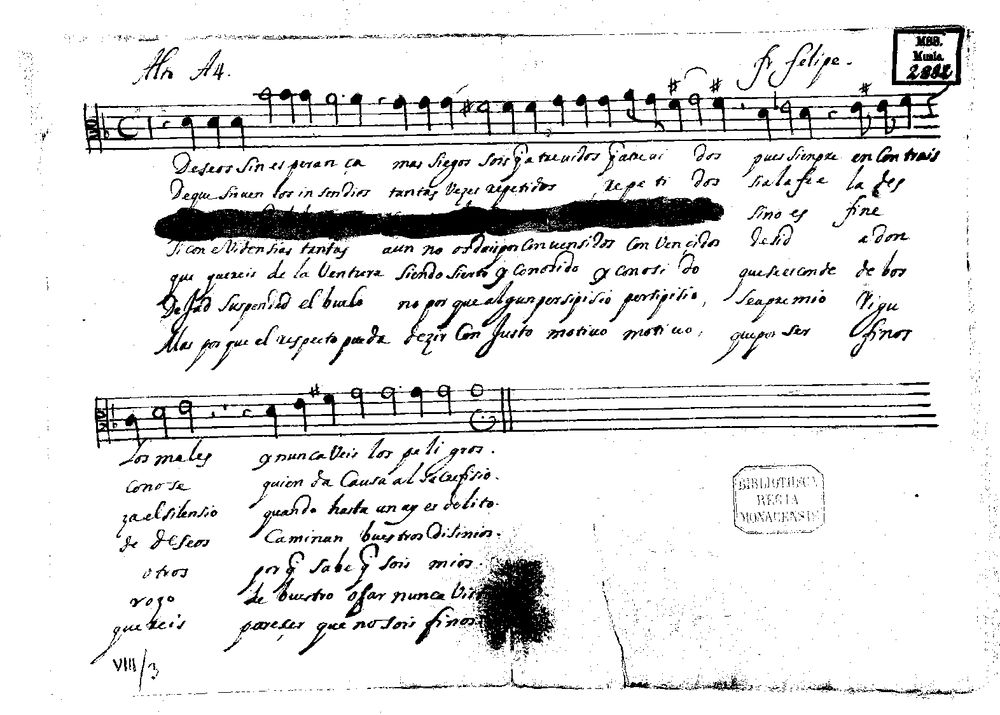 Alto A4.
fr felipe.
MSS.
Musis.
2882
Deseos sin esperan ça mas siegos sois q̃ atreuidos q̃ atreui dos pues siempre en con trais
De que siruen los insendios tantas vezes repetidos repeti dos si a la fee la des
sino es fine
Si con eVidensias tantas aun no os dais por Convensidos Con Vencidos de sid a don
que quereis de la Ventura siendo sierto q conosido q conosi do que se esconde de bos
Dejad suspended el buelo no por que algun persipisio persipisio, sea premio Vigu
Mas por que el respecto pueda dezir Con Justo motiuo motiuo, que por ser finos
Los males q nunca Veis los peli gros.
conose quien da Causa al sacrefisio.
za el silensio quando hasta un ay es delito.
de deseos Caminan buestros Disinios.
otros por q̃ sabe q̃ sois mios.
rozo de buestro osar nunca
quereis pareser que no sois finos
BIBLIOTHECA
REGIA
MONACENSIS
VIII/3